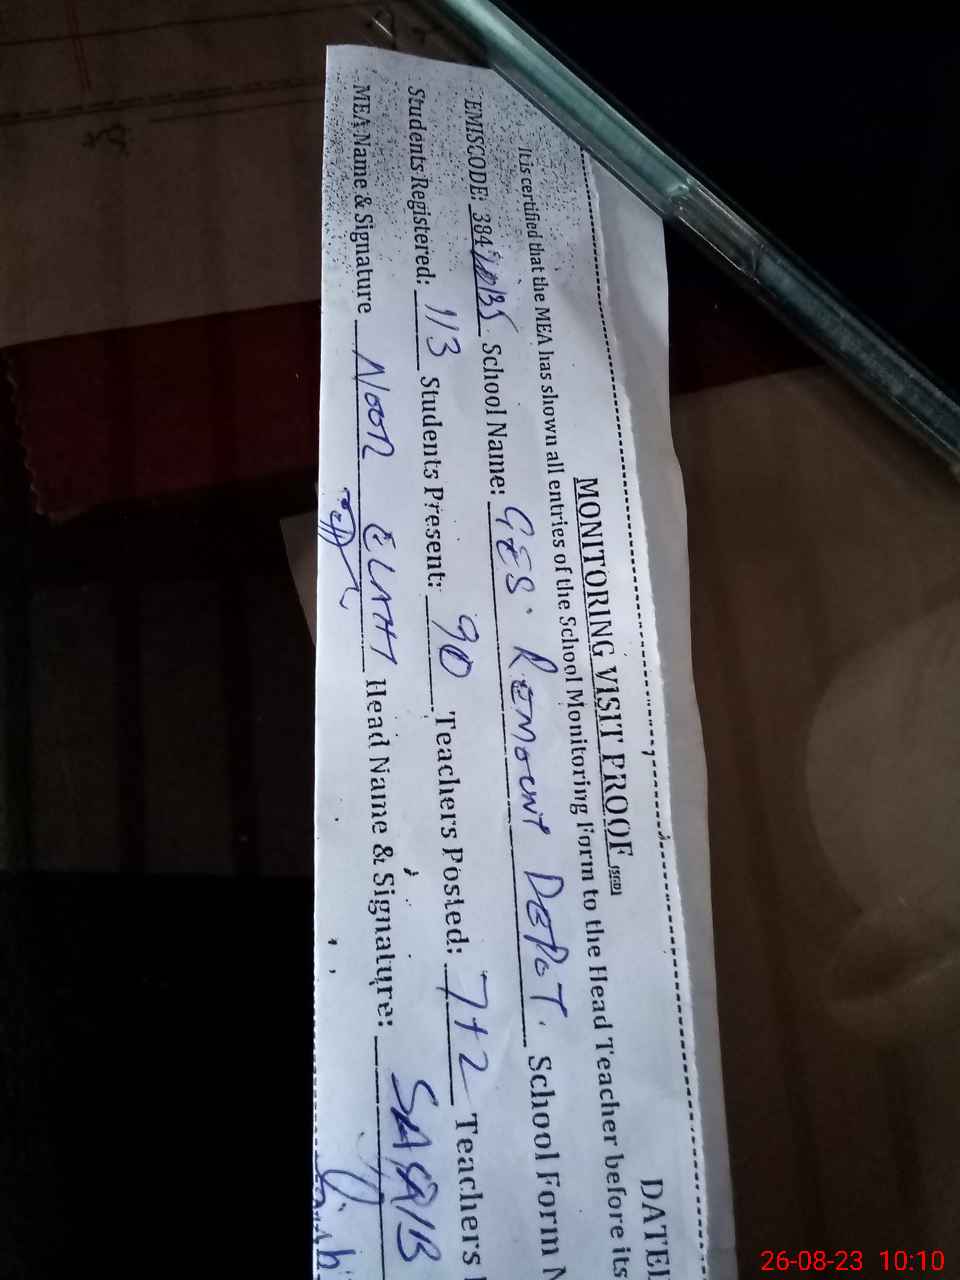 MONITORING VISIT PROOF (SED) DATED
It is certified that the MEA has shown all entries of the School Monitoring Form to the Head Teacher before its
EMISCODE: 384 School Name: GES. REMOUNT DEPOT. School Form N
Students Registered: 113 Students Present: 90 Teachers Posted: 7+2 Teachers
MEA Name & Signature NOOR ELAHI Head Name & Signature: SAQIB
26-08-23 10:10